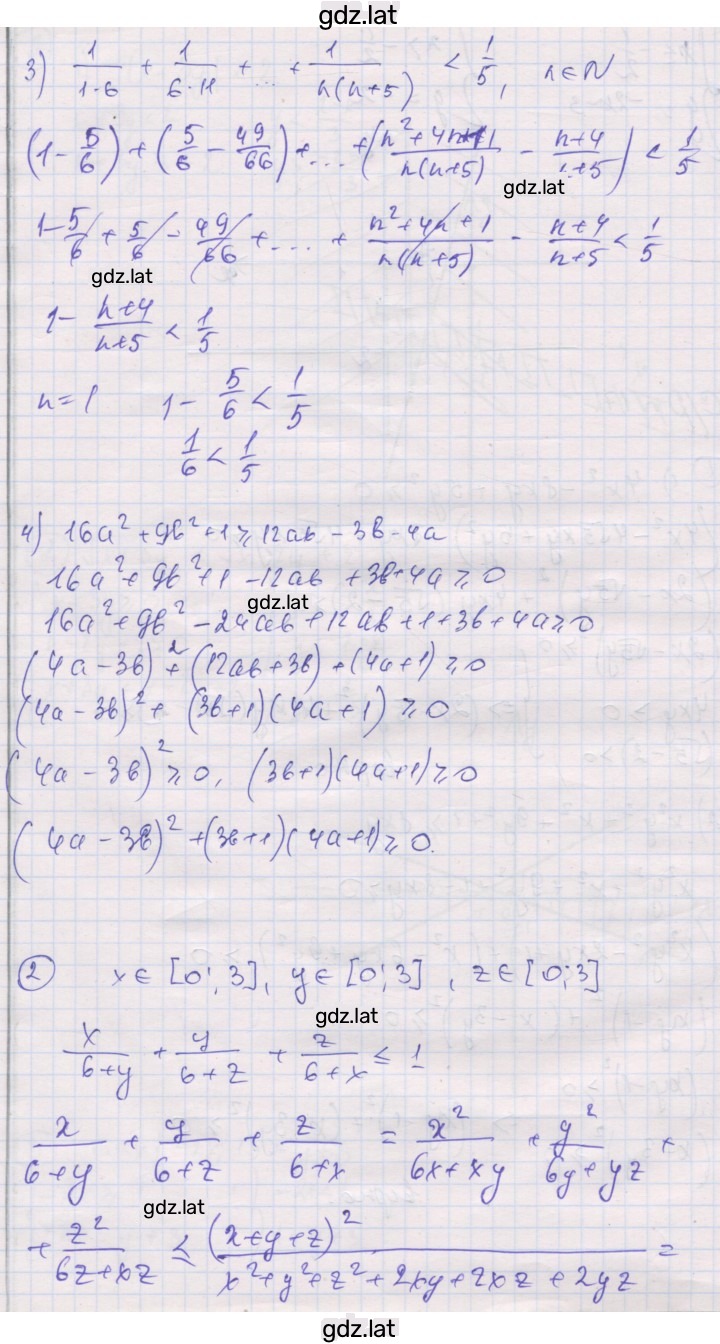 gdz.lat
3) 1/(1·6) + 1/(6·11) + ... + 1/(n(n+5)) < 1/5, n∈N
(1 - 5/6) + (5/6 - 49/66) + ... + ((n²+4n+1)/(n(n+5)) - (n+4)/(n+5)) < 1/5
gdz.lat
1 - 5/6 + 5/6 - 49/66 + ... + (n²+4n+1)/(n(n+5)) - (n+4)/(n+5) < 1/5
gdz.lat
1 - (n+4)/(n+5) < 1/5
n=1 1 - 5/6 < 1/5
1/6 < 1/5
4) 16a²+9b²+1 ≥ 12ab - 3b - 4a
16a²+9b²+1 - 12ab + 3b + 4a ≥ 0
gdz.lat
16a²+9b² - 24ab + 12ab + 1 + 3b + 4a ≥ 0
(4a - 3b)² + (12ab + 3b) + (4a+1) ≥ 0
(4a - 3b)² + (3b+1)(4a+1) ≥ 0
(4a - 3b)² ≥ 0, (3b+1)(4a+1) ≥ 0
(4a - 3b)² + (3b+1)(4a+1) ≥ 0.
② x∈[0;3], y∈[0;3], z∈[0;3]
gdz.lat
x/(6+y) + y/(6+z) + z/(6+x) ≤ 1
x/(6+y) + y/(6+z) + z/(6+x) = x²/(6x+xy) + y²/(6y+yz) +
gdz.lat
+ z²/(6z+xz) ≤ (x+y+z)²/(x²+y²+z²+2xy+2xz+2yz) =
gdz.lat